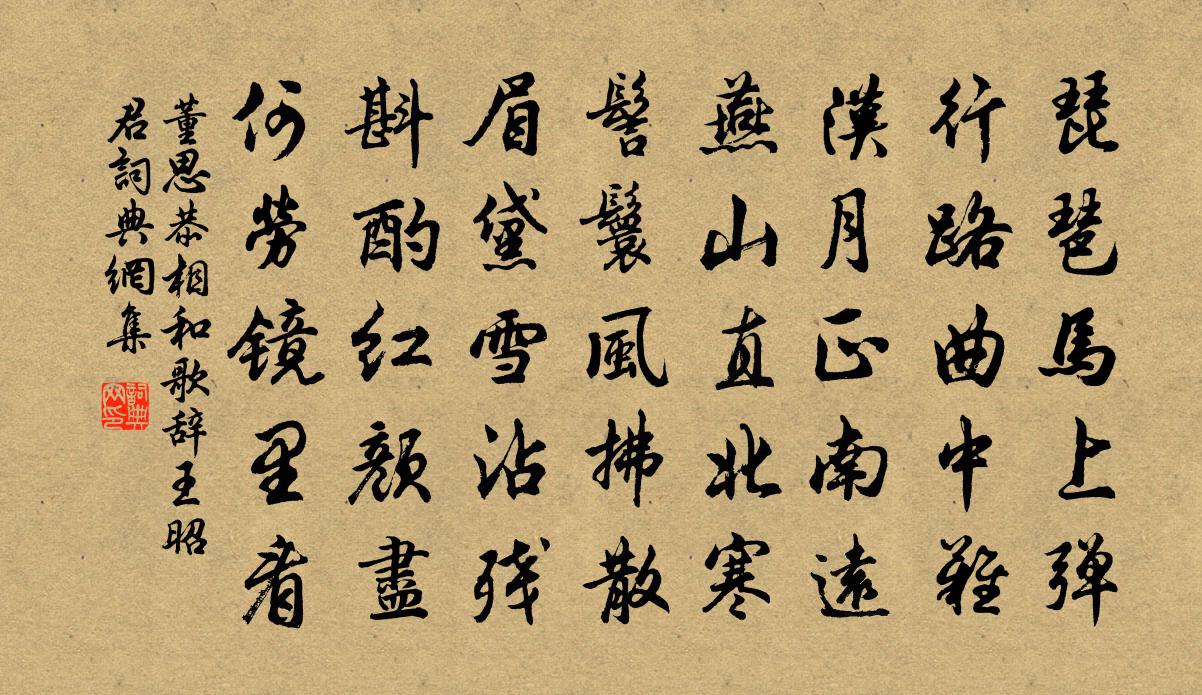 琵琶馬上弹
行路曲中難
漢月正南遠
燕山直北寒
髻鬟風拂散
眉黛雪沾残
斟酌红顔盡
何勞镜里看
董思恭相和歌辞王昭
君詞典網集
詞典网印